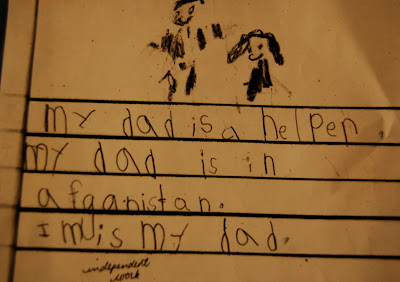 my dad is a helper.
my dad is in
afaanistan.
I mis my dad.
independent
work